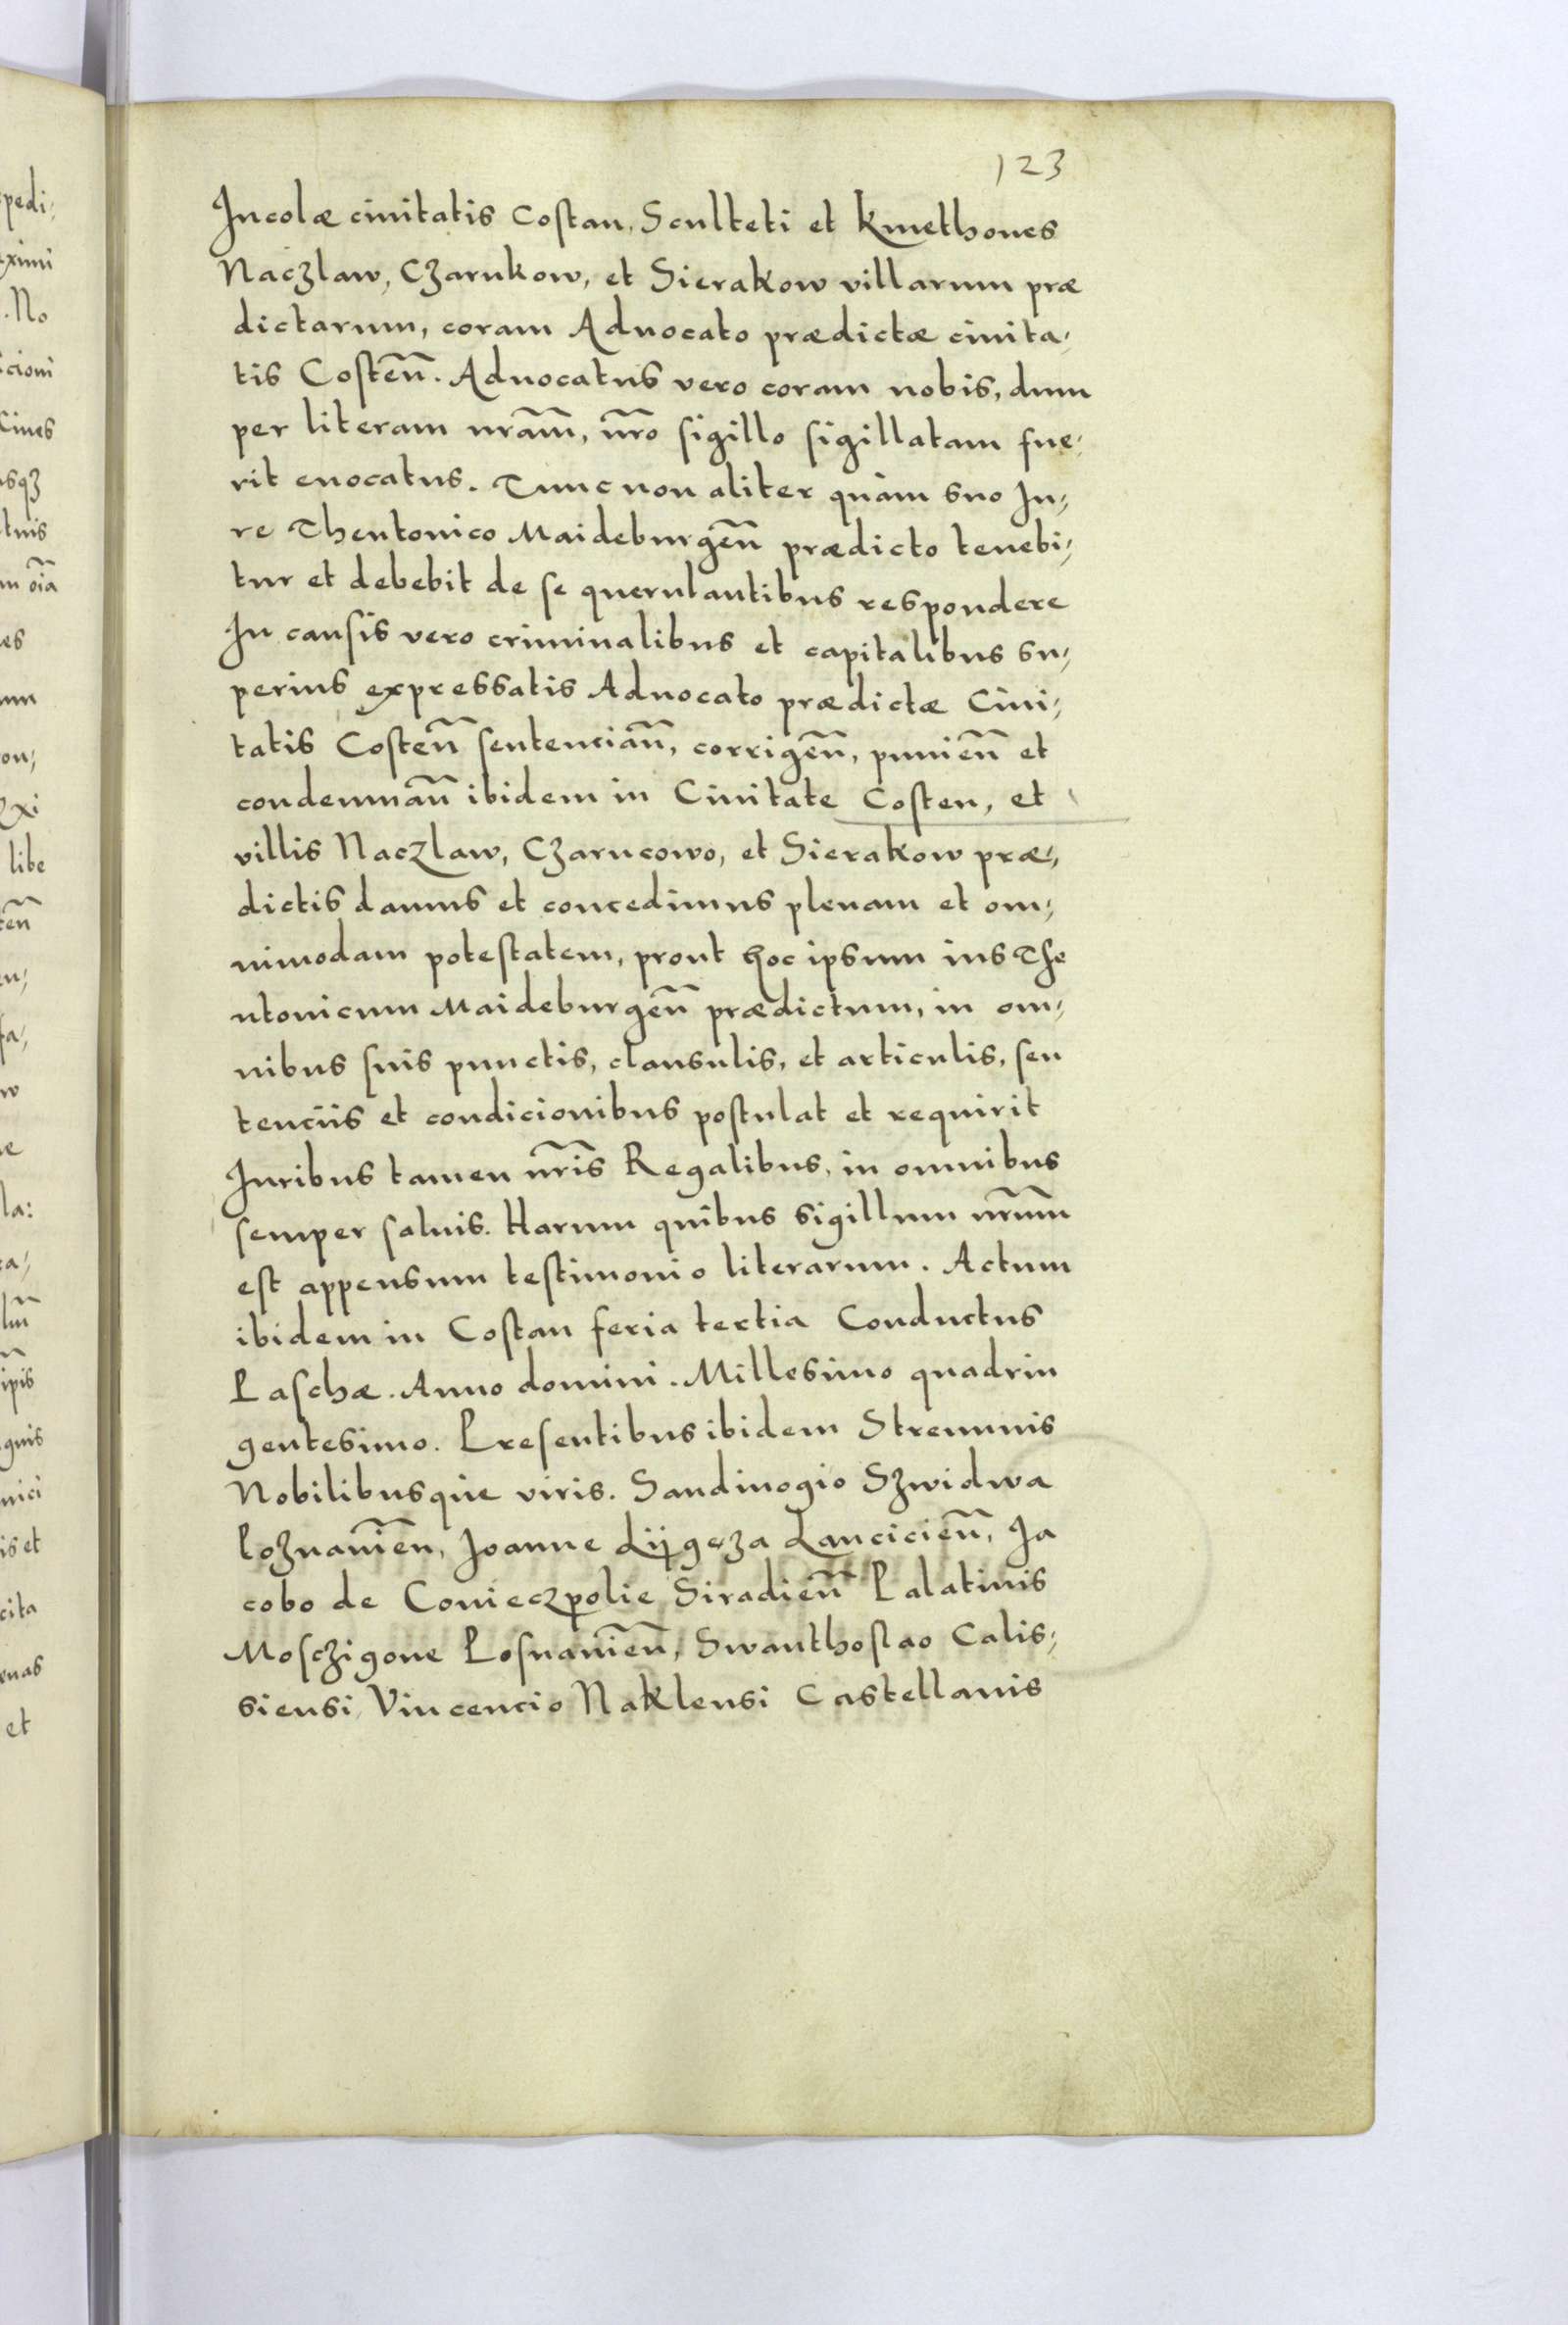 123
Incolæ ciuitatis Costan, Sculteti et Kmethones
Naczlaw, Czarnkow, et Sierakow villarum præ
dictarum, coram Aduocato prædictæ ciuita,
tis Costen̄. Aduocatus vero coram nobis, dum
per literam nr̄am, nr̄o sigillo sigillatam fue,
rit euocatus. Tunc non aliter quàm suo Iu,
re Theutonico Maideburgen̄ prædicto tenebi,
tur et debebit de se querulantibus respondere
In causis vero criminalibus et capitalibus su,
perius expressatis Aduocato prædictæ Ciui,
tatis Costen̄ sentencian̄, corrigen̄, punien̄ et
condemnan̄ ibidem in Ciuitate Costen, et
villis Naczlaw, Czarncowo, et Sierakow præ,
dictis damus et concedimus plenam et om,
nimodam potestatem, prout hoc ipsum ius The
utonicum Maideburgen̄ prædictum, in om,
nibus suis punctis, clausulis, et articulis, sen
tenciis et condicionibus postulat et requirit
Iuribus tamen nr̄is Regalibus, in omnibus
semper saluis. Harum quibus sigillum nr̄um
est appensum testimonio literarum. Actum
ibidem in Costan feria tertia Conductus
Paschæ. Anno domini. Millesimo quadrin
gentesimo. Presentibus ibidem Strennuis
Nobilibusque viris. Sandiuogio Szwidwa
Poznanien̄, Joanne Lÿgeza Lancicien̄, Ja
cobo de Conieczpolie Siradien̄ Palatinis
Mosczigone Posnanien̄, Swanthoslao Calis,
siensi, Vincencio Naklensi Castellanis
pedi,
ximi
. No
cioni
Ciues
usqz
tuis
m oīa
es
um
on,
xi
libe
ten̄
en,
fa,
w
e
la:
ca,
ipis
guis
nici
is et
cita
nas
et